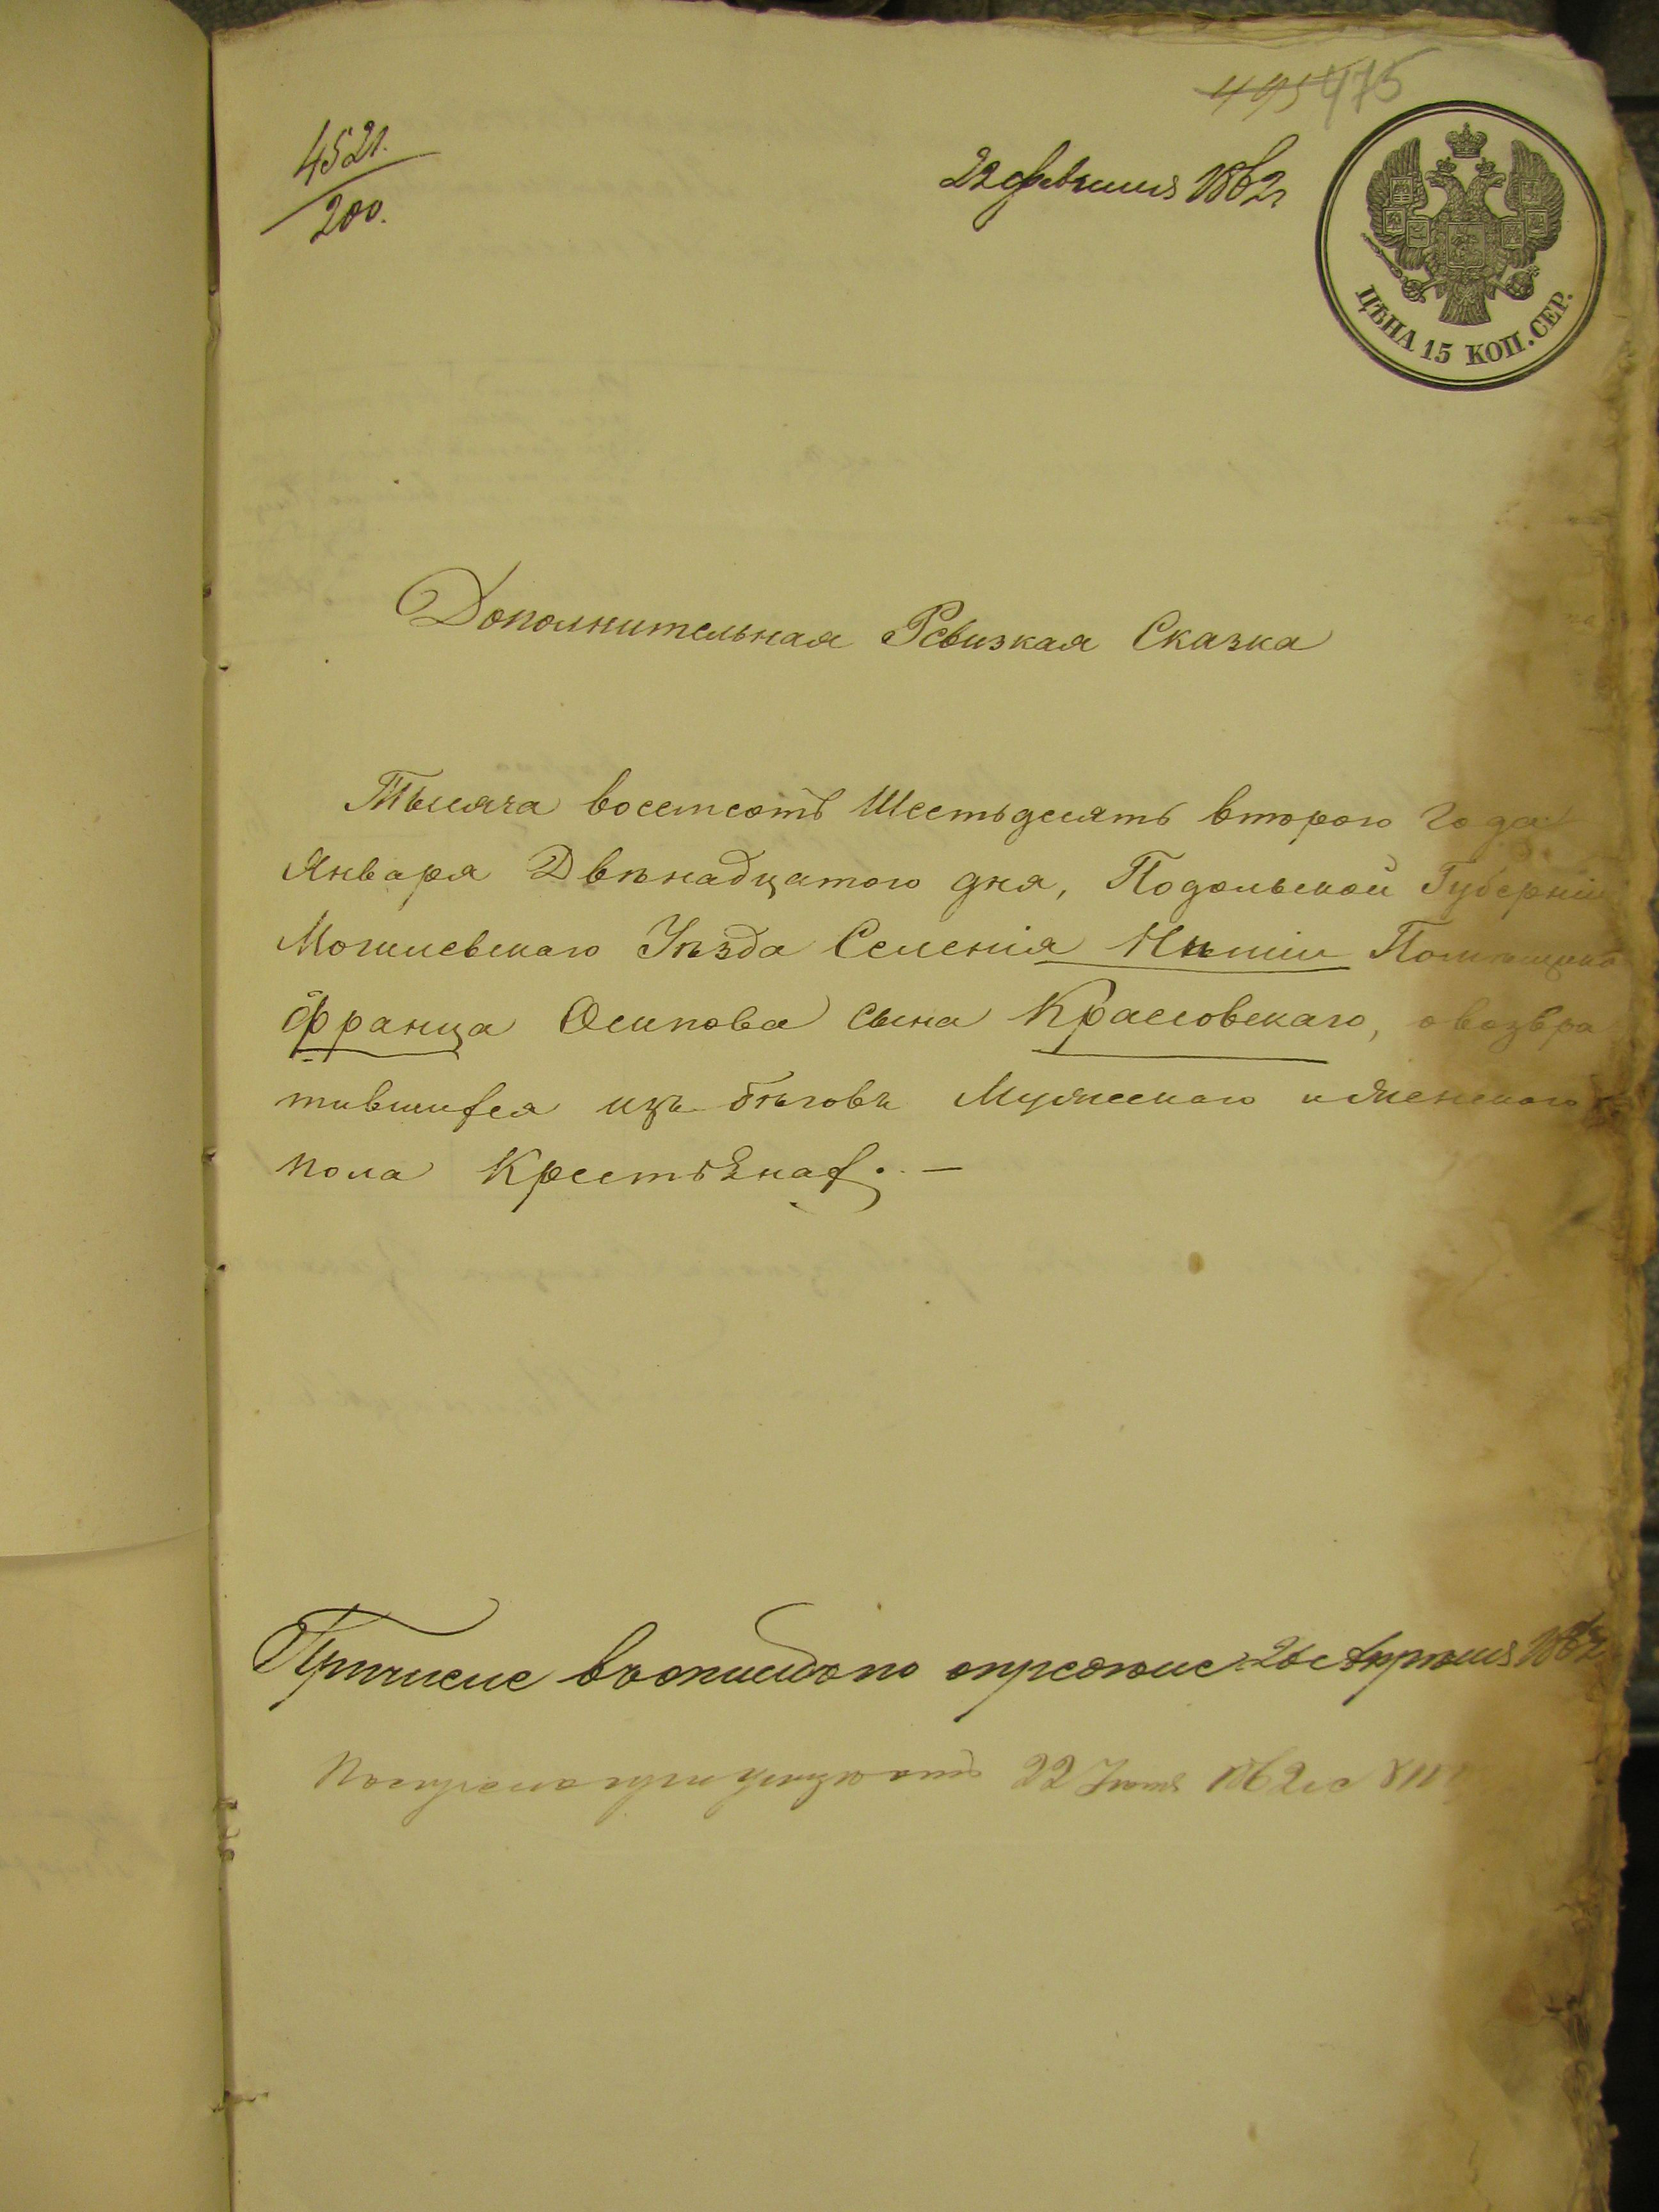 495 475
4521.
200.
22 февраля 1862 г
ЦѢНА 15 КОП. СЕР.
Дополнительная Ревизкая Сказка
Тысяча восемсотъ Шестьдесятъ второго Года
Января Двѣнадцатого дня, Подольской Губерніи
Могилевскаго Уѣзда Селенія Помѣщика
Франца Осипова сына Красовскаго, о возвра
тившихся изъ бѣговъ Мужескаго и Женскаго
пола Крестьянах. —
26 Апрѣля 1862
22 Іюня 1862